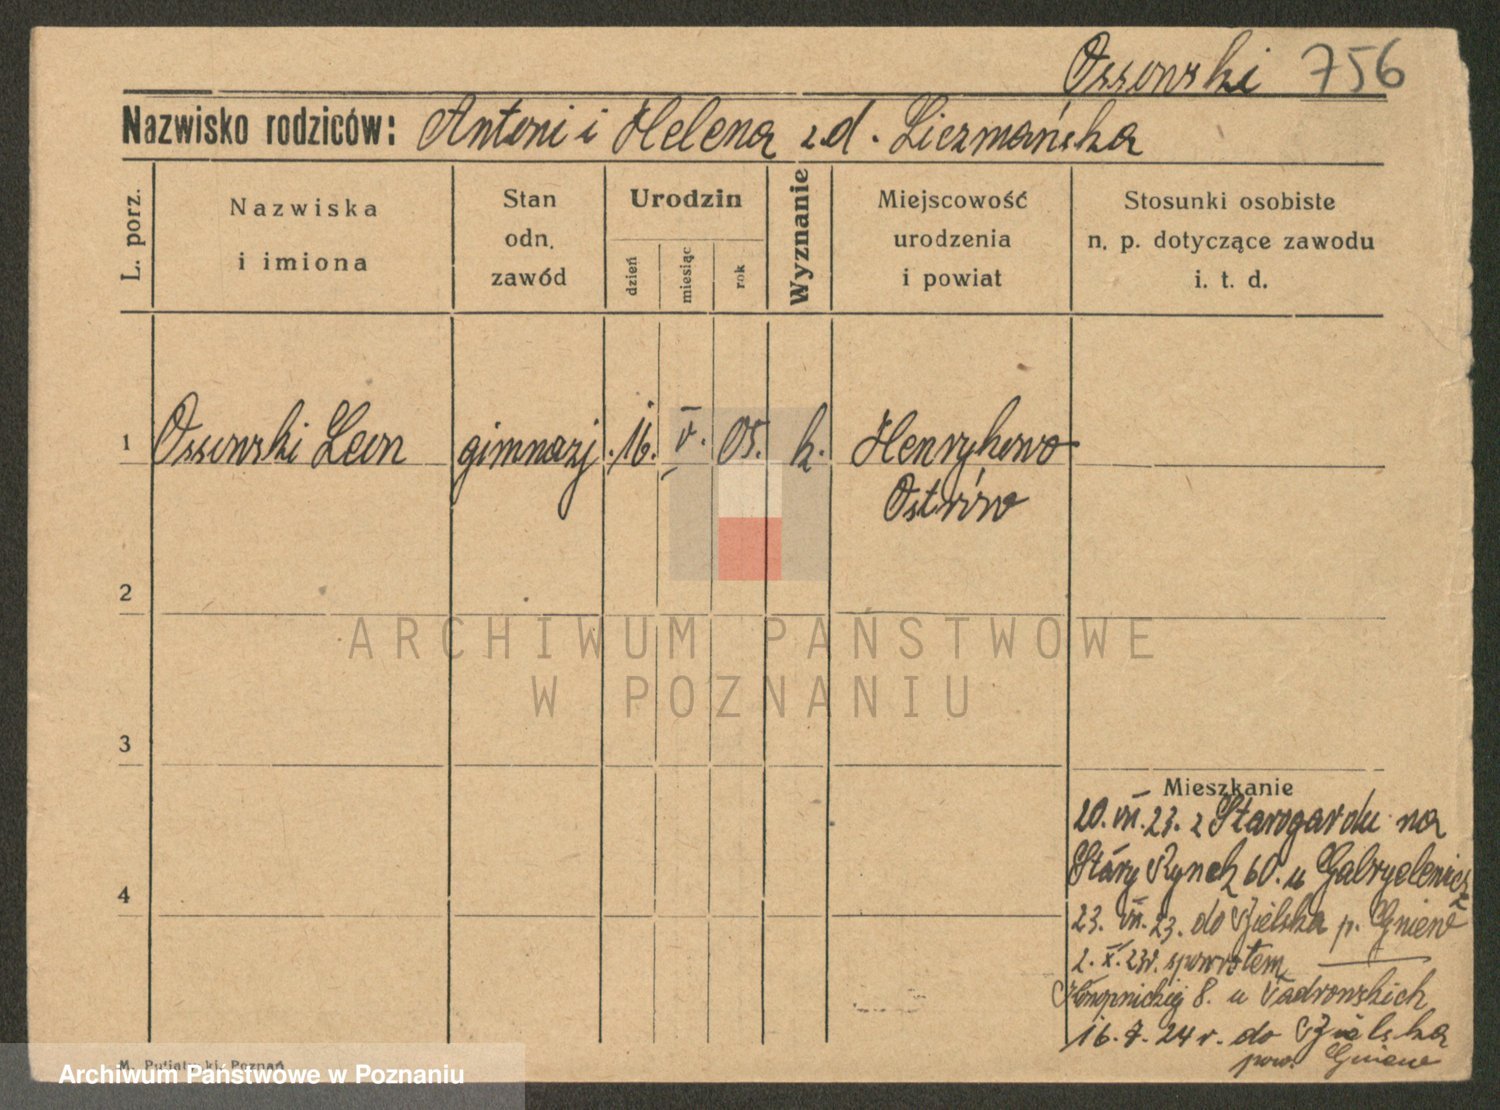 Ossowski 756
Nazwisko rodziców: Antoni i Helena z d. Liczmańska
L. porz.
Nazwiska
i imiona
Stan
odn.
zawód
Urodzin
dzień
miesiąc
rok
Wyznanie
Miejscowość
urodzenia
i powiat
Stosunki osobiste
n. p. dotyczące zawodu
i. t. d.
1 Ossowski Leon gimnazj. 16. V. 05. k. Henrykowo
Ostrów
2
ARCHIWUM PAŃSTWOWE
W POZNANIU
3
Mieszkanie
20. VII. 23. z Starogardu na
Stary Rynek 60. u
4
23. VII. 23. do p. Gniew
2. X. 23r. spowrotem
8. u
16. 7. 24 r. do
pow. Gniew
Poznań
Archiwum Państwowe w Poznaniu